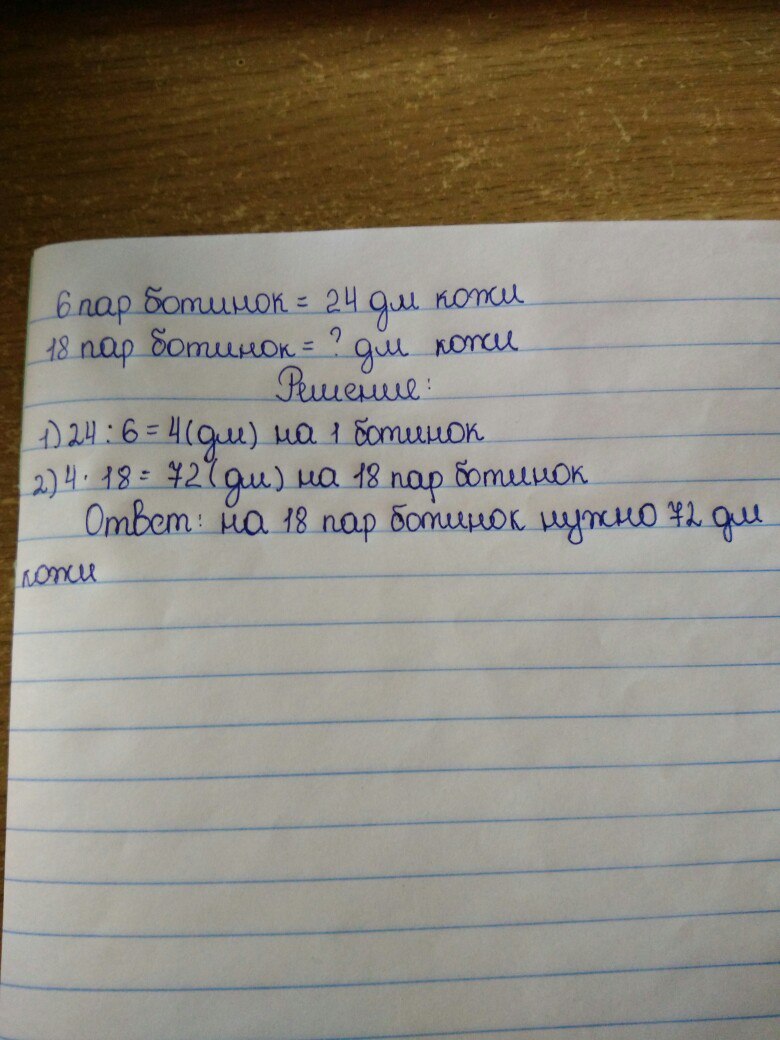 6 пар ботинок = 24 дм кожи
18 пар ботинок = ? дм кожи
Решение:
1) 24 : 6 = 4 (дм) на 1 ботинок
2) 4 · 18 = 72 (дм) на 18 пар ботинок
Ответ: на 18 пар ботинок нужно 72 дм
кожи